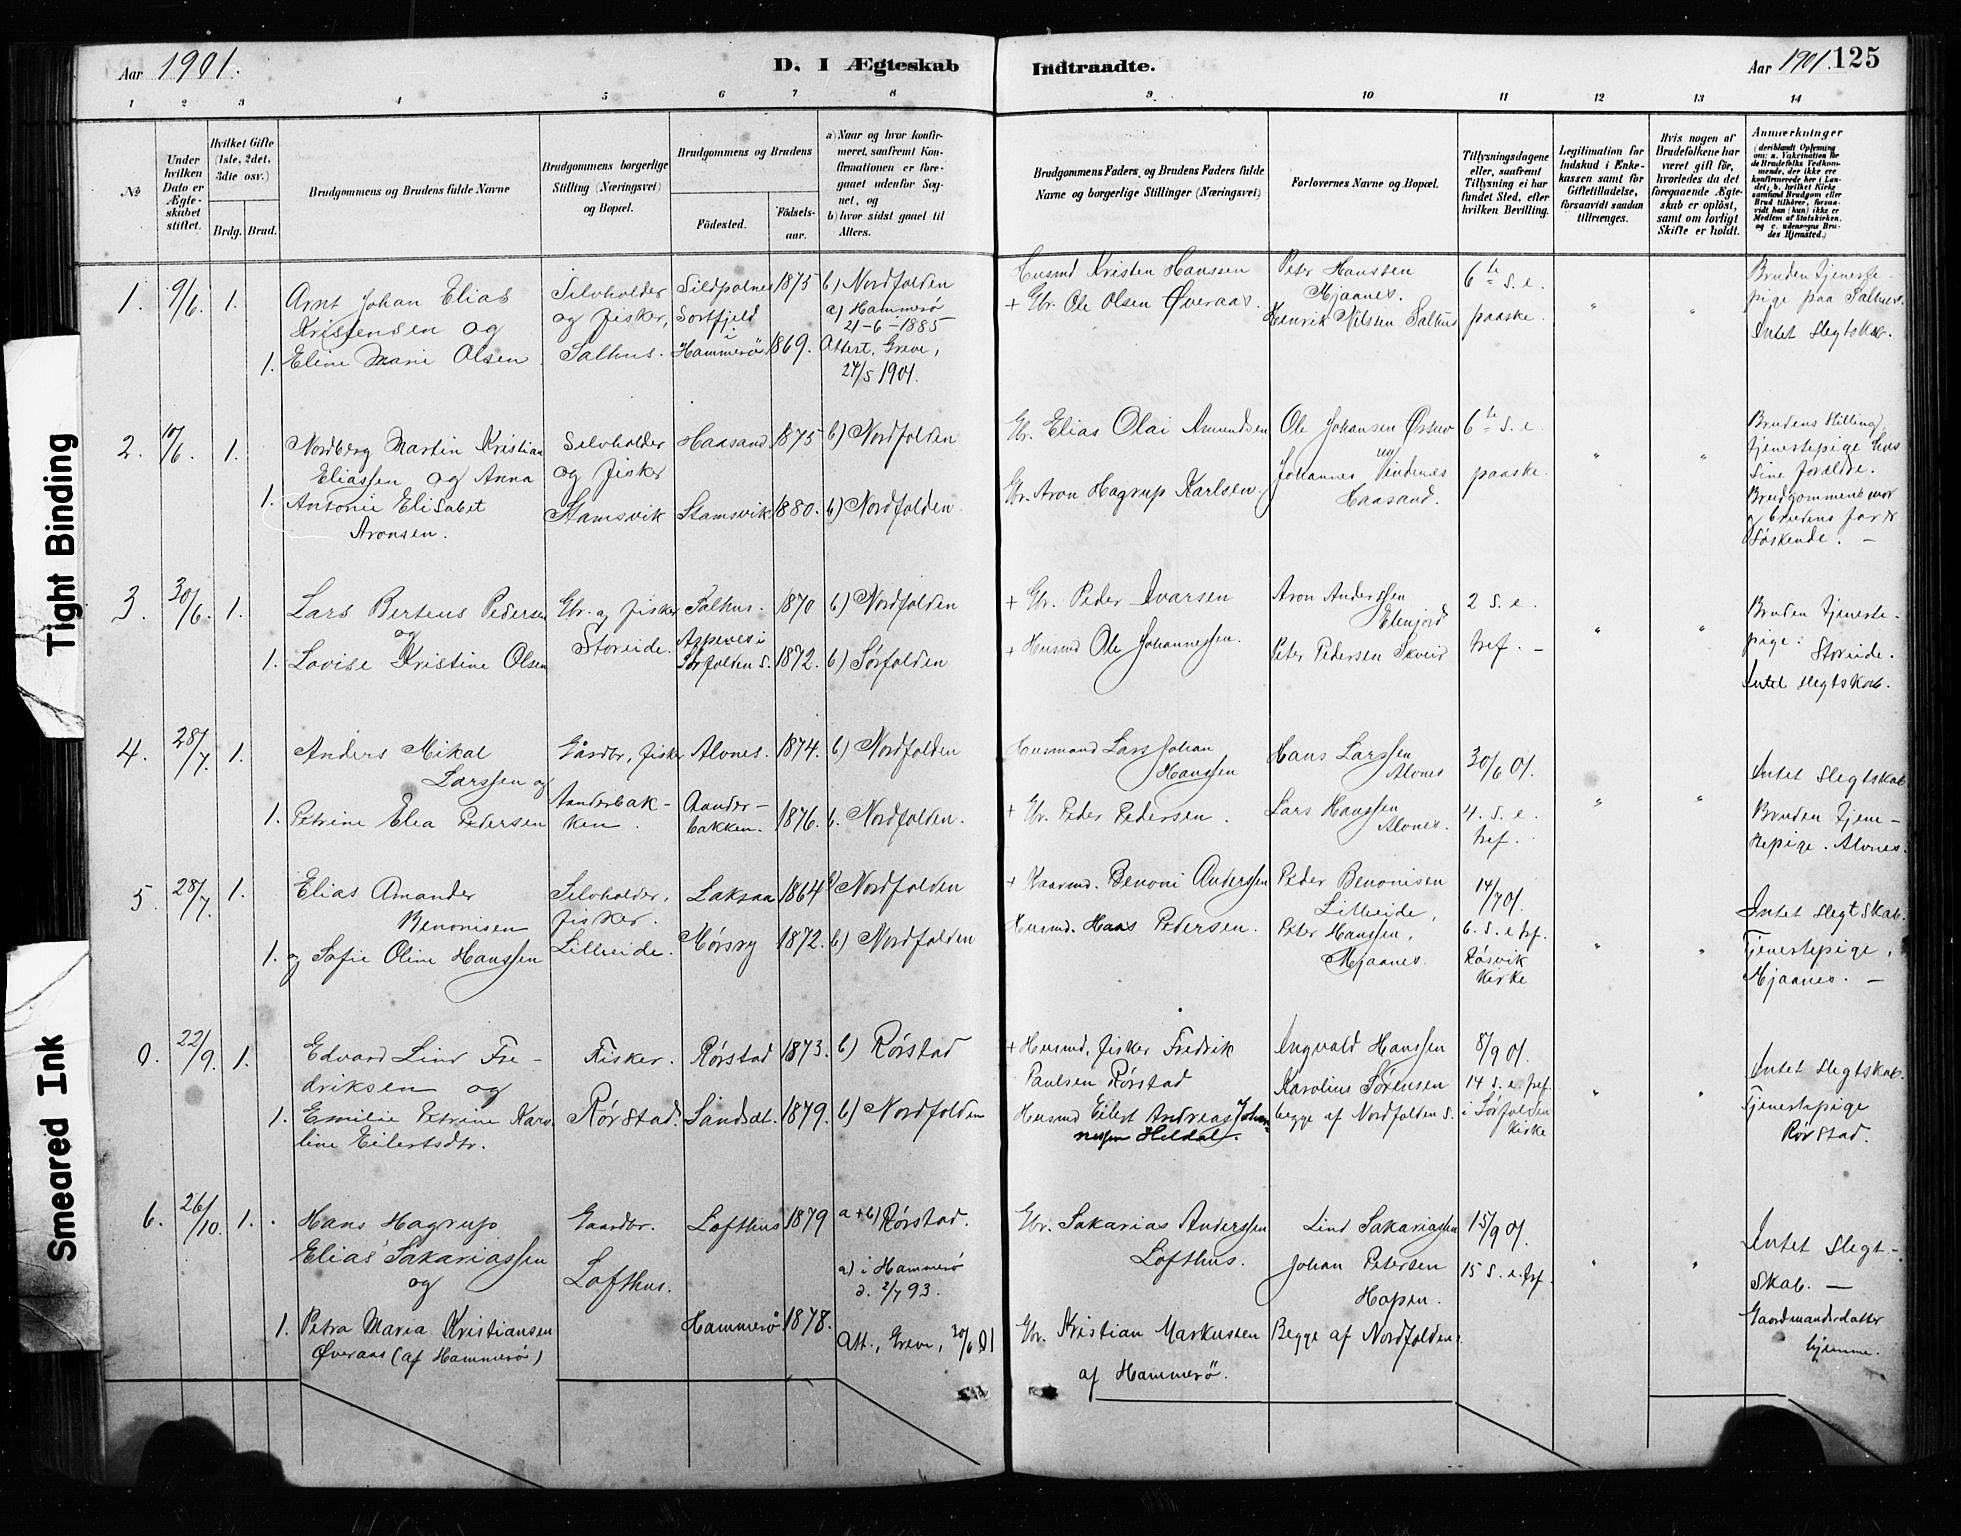 Aar 1901.
D. I Ægteskab
Indtraadte.
Aar 1901. 125
1 2 3 4 5 6 7 8 9 10 11 12 13 14
No
Under hvilken Dato er Ægteskabet stiftet.
Hvilket Gifte (1ste, 2det, 3die osv.)
Brdg. Brud.
Brudgommens og Brudens fulde Navne
Brudgommens borgerlige Stilling (Næringsvei) og Bopæl.
Brudgommens og Brudens
Födested.
Födselsaar.
a) Naar og hvor konfirmeret, saafremt Konfirmationen er foregaaet udenfor Sognet, og
b) hvor sidst gaaet til Alters.
Brudgommens Faders, og Brudens Faders fulde Navne og borgerlige Stillinger (Næringsvei)
Forlovernes Navne og Bopæl.
Tillysningsdagene eller, saafremt Tillysning ei har fundet Sted, efter hvilken Bevilling.
Legitimation for Indskud i Enkekassen samt for Giftetilladelse, forsaavidt saadan tiltrænges.
Hvis nogen af Brudefolkene har været gift för, hvorledes da det foregaaende Ægteskab er oplöst, samt om lovligt Skifte er holdt.
Anmærkninger (deriblandt Oplysning om: a. Vakcination for de Brudefolks Vedkommende, der ikke ere konfirmerede her i Landet; b. hvilket Kirkesamfund Brudgom eller Brud tilhörer, forsaavidt han (hun) ikke er Medlem af Statskirken, og c. udensogns Brudes Hjemsted.)
1. 9/6. 1.
Arnt Johan Elias
Kristensen og
1. Eline Marie Olsen
Selvholder
og fisker,
Salhus.
Sildpolnes 1875
Sortfjeld
i
Hammerö 1869.
b) Nordfolden
a) Hammerø
21-6-1885
Attest. Greve,
27/5 1901.
Husmd Kristen Hanssen
+ Gbr. Ole Olsen Øveraas.
Peter Hanssen
Mjaanes.
Henrik Nilsen Salhus
6te s. e.
paaske.
" "
Bruden tjeneste-
pige paa Salhus.
Intet Slegtskab.
2. 10/6. 1.
Nordberg Martin Kristian
Eliassen og Anna
1. Antonie Elisabet
Aronsen.
Selvholder
og fisker
Stamsvik
Haasand 1875 b) Nordfolden
Stamsvik 1880. b) Nordfolden
Gbr. Elias Olai Amundsen
Gbr. Aron Hagrup Karlsen.
Ole Johansen
Johannes Vindenes
Haasand.
6te s. e.
paaske.
" "
Brudens Stilling,
tjenestepige hos
sine forældre.
Brudgommens mor
og brudens far er
Søskende. —
3. 30/6. 1.
Lars Berteus Pedersen
og
1. Lovise Kristine Olsen
Gbr. og fisker
Storeide.
Salhus. 1870 b) Nordfolden
Sørfolden S. 1872. b) Sørfolden
+ Gbr. Peder Ivarsen
+ Husmd Ole Johannessen.
Aron Anderssen
Elenjord
Peter Pedersen
2 s. e.
tref. —
" "
Bruden tjeneste-
pige. Storeide.
Intet Slegtskab.
4. 28/7. 1.
Anders Mikal
Larssen og
1. Petrine Elea Pedersen
Gårdbr, fisker
Aanderbak-
ken.
Alvnes. 1874. b) Nordfolden
Aander-
bakken. 1876. b. Nordfolden.
Husmand Lars Johan
Hanssen
+ Gbr. Peder Pedersen.
Hans Larssen
Alvnes
Lars Hanssen
Alvnes.
30/6 01.
4. s. e.
tref.
" "
Intet Slegtskab
Bruden tjene-
stepige. Alvnes.
5. 28/7. 1.
Elias Amandar
Benonisen
1. og Sofie Oline Hanssen
Selvholder,
fisker.
Lilleeide.
Laksaa 1864 b) Nordfolden
Mørsry 1872. b) Nordfolden
+ Kaarmd. Benoni Anderssen
Husmd. Hans Pedersen.
Peder Benonisen
Lilleeide,
Peter Hanssen,
Mjaanes.
14/7 01.
6. s. e. tref.
Røsvik
Kirke
" "
Intet Slegtskab.
Tjenestepige,
Mjaanes. —
0. 22/9. 1.
Edvard Lind Fre-
driksen og
1. Emilie Petrine Karo
line Eilertsdtr.
Fisker.
Rørstad.
Rørstad 1873. b) Rørstad
Sandsæt. 1879. b) Nordfolden
+ Husmd, fisker Fredrik
Paulsen Rørstad
Husmd Eilert Andreas Johan-
nessen Heldal.
Ingvald Hanssen
Karolius Sørensen
begge af Nordfolden S.
8/9 01.
14 s. e. tref.
i Sørfolden
Kirke
" "
Intet Slegtskab.
Tjenestepige
Rørstad.
6. 26/10. 1.
Hans Hagrup
Elias Sakariassen
og
1. Petra Maria Kristiansen
Øveraas (af Hammerø)
Gaardbr.
Lofthus.
Lofthus 1879
Hammerö 1878.
a+b) Rørstad.
a) i Hammerø
d. 2/7 93.
Att., Greve, 30/6 01
Gbr. Sakarias Anderssen
Lofthus.
Gbr. Kristian Markussen
af Hammerö.
Lind Sakariassen
Johan Petersen
Hopen.
Begge af Nordfolden.
15/9 01.
15 s. e. tref.
" "
Intet Slegt-
skab. —
Gaardmandsdatter
hjemme.
Tight Binding
Smeared Ink